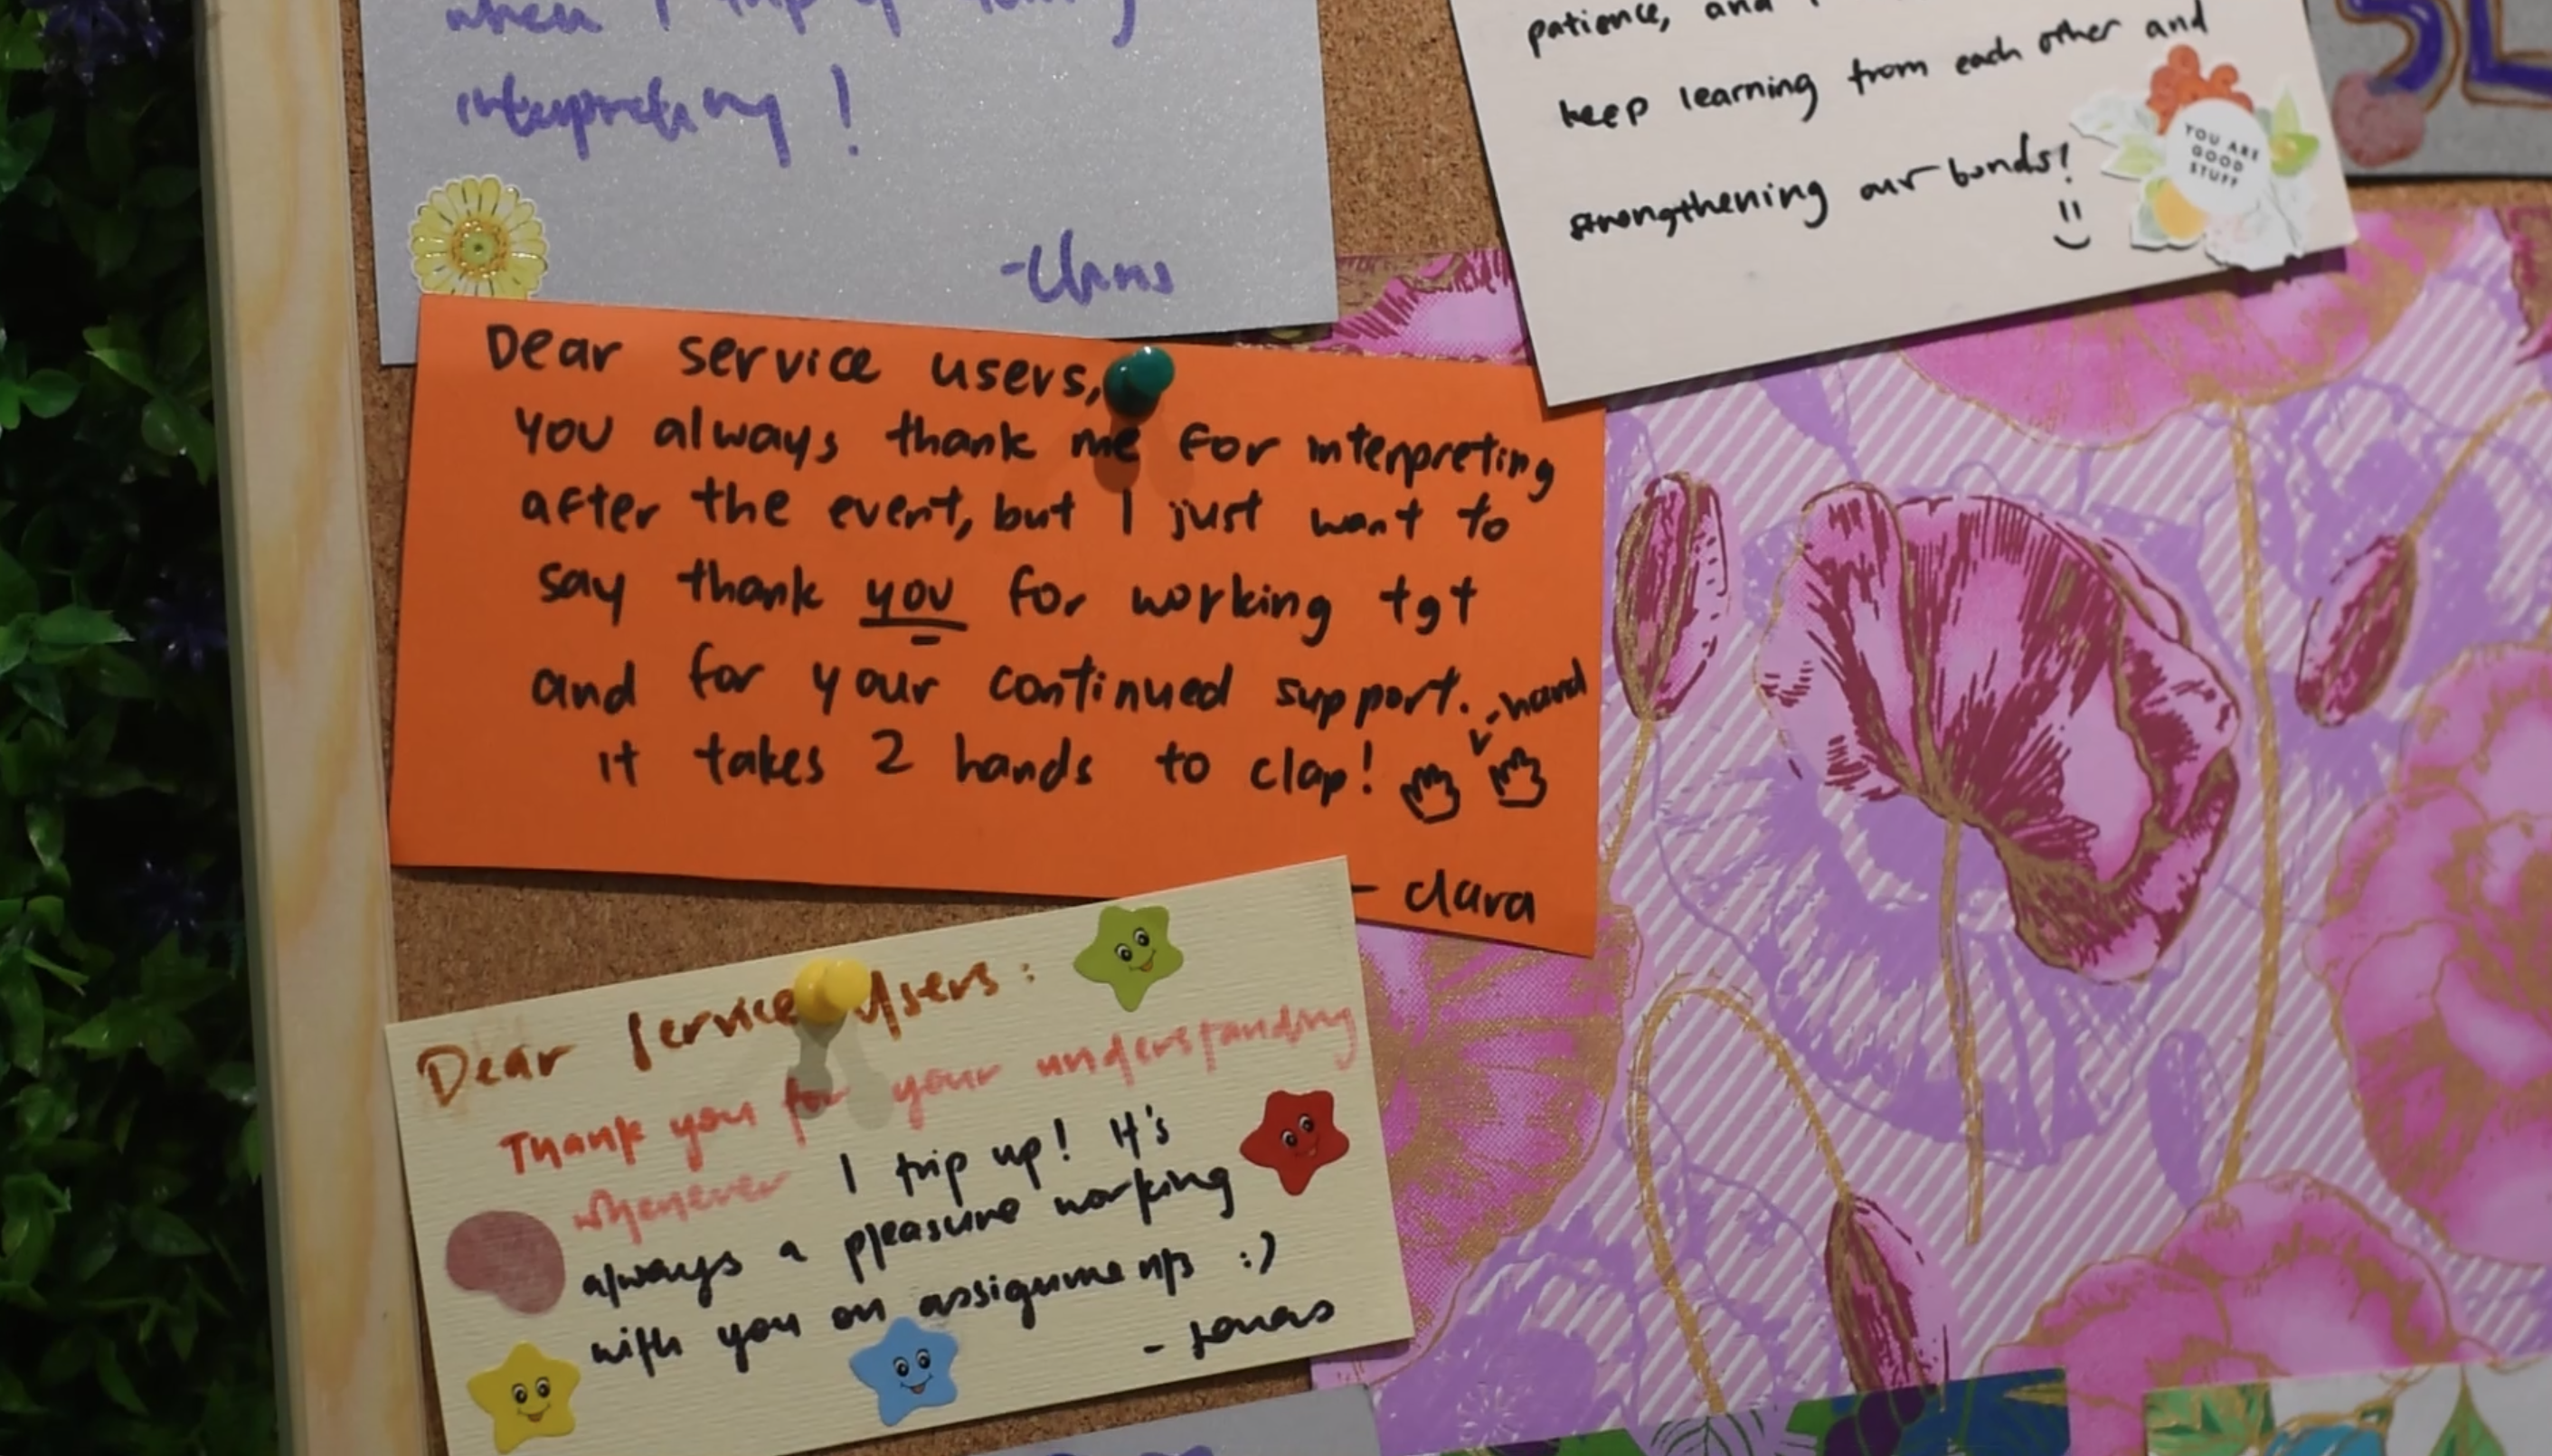 when I trip up
interpreting!
patience, and
keep learning from each other and
strengthening our bonds!
YOU ARE
GOOD
STUFF
SL
Dear service users,
you always thank me for interpreting
after the event, but I just want to
say thank you for working tgt
and for your continued support.
hand
it takes 2 hands to clap!
- Clara
Dear Service Users:
Thank you for your understanding
whenever I trip up! It's
always a pleasure working
with you on assignments :)
- Jonas